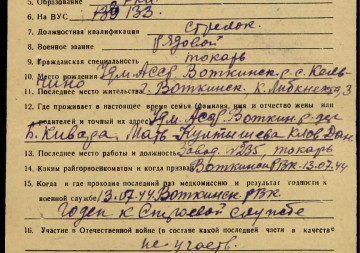 5. Образование
6. На ВУС 133
7. Должностная квалификация стрелок
8. Военное звание Рядовой
9. Гражданская специальность токарь
10. Место рождения Удм. Асср. Воткинск. р.
11. Последнее место жительства г. Воткинск, К. Либкнехта, 3
12. Где проживает в настоящее время семья (фамилия, имя и отчество жены или
родителей и точный их адрес) Удм. Асср. Воткин. р.
Б. Кивара. Мать
13. Последнее место работы и должность Завод. №235. токарь
14. Каким райгоркоматом и когда призван Воткинск РВК. 13.07.44
15. Когда и где проходил последний раз медкомиссию и результат годности к
военной службе 13.07.44 Воткинск. РВК.
годен к строевой службе
16. Участие в Отечественной войне (в составе какой последней части в качестве
не участв.